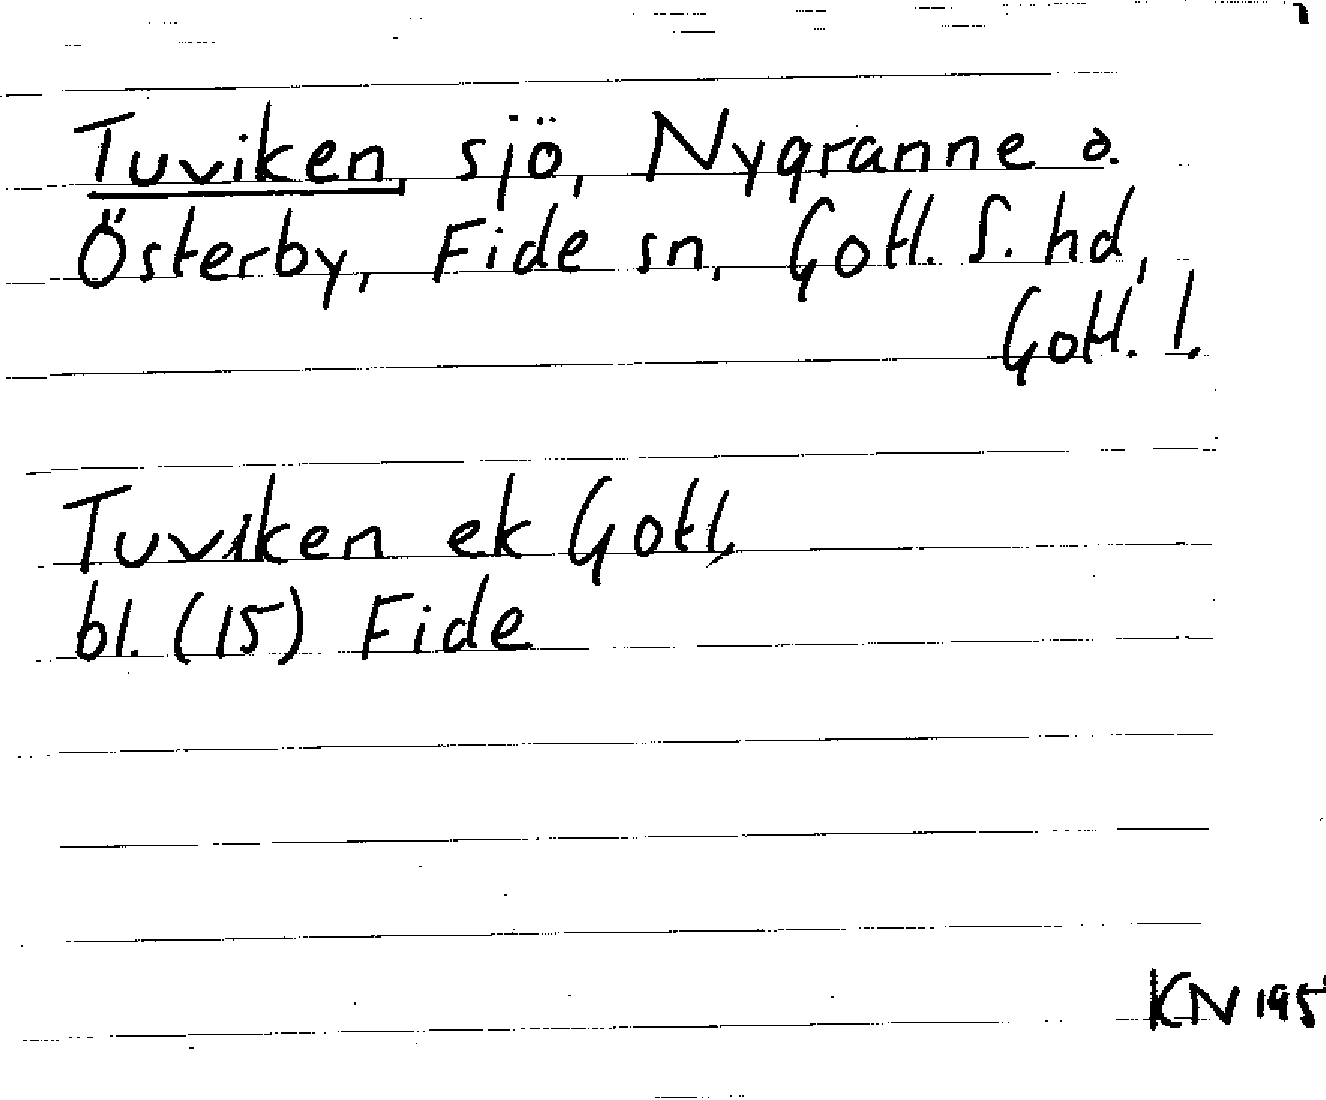 Tuviken, sjö, Nygranne o.
Österby, Fide sn, Gotl. S. hd,
Gotl. l.
Tuviken ek Gotl,
bl. (15) Fide
KN 195